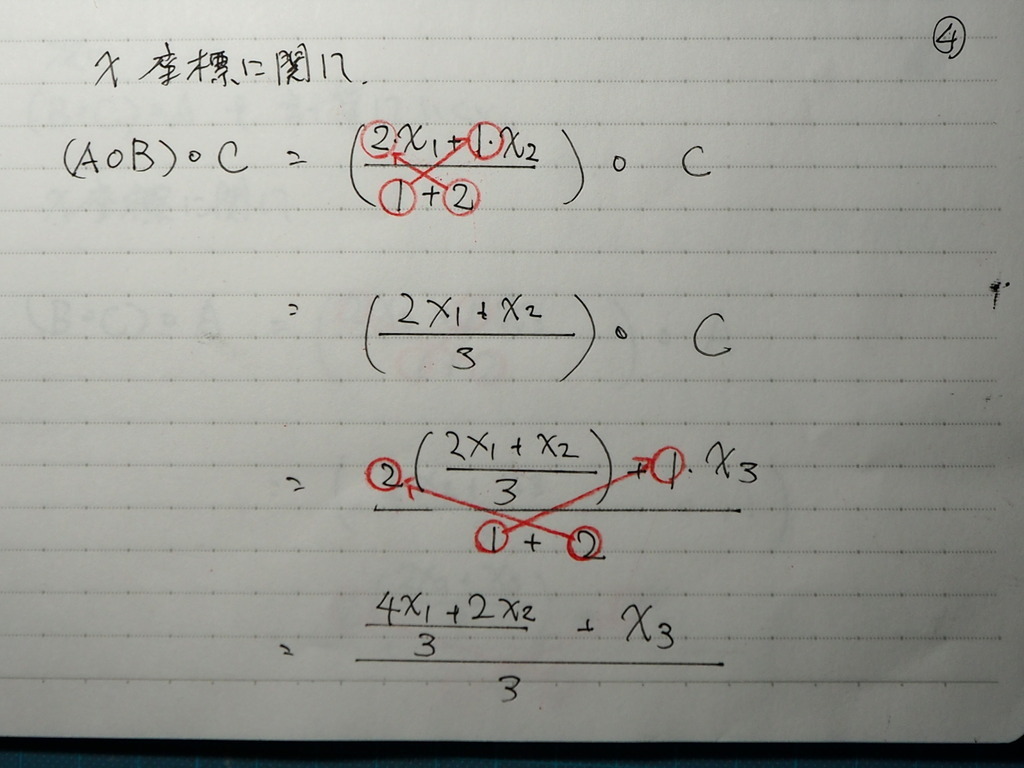 ④
x 座標に関して.
(A∘B)∘C = ((2・x₁+1・x₂)/(1+2))∘C
= ((2x₁+x₂)/3)∘C
= (2((2x₁+x₂)/3)+1・x₃)/(1+2)
= ((4x₁+2x₂)/3+x₃)/3